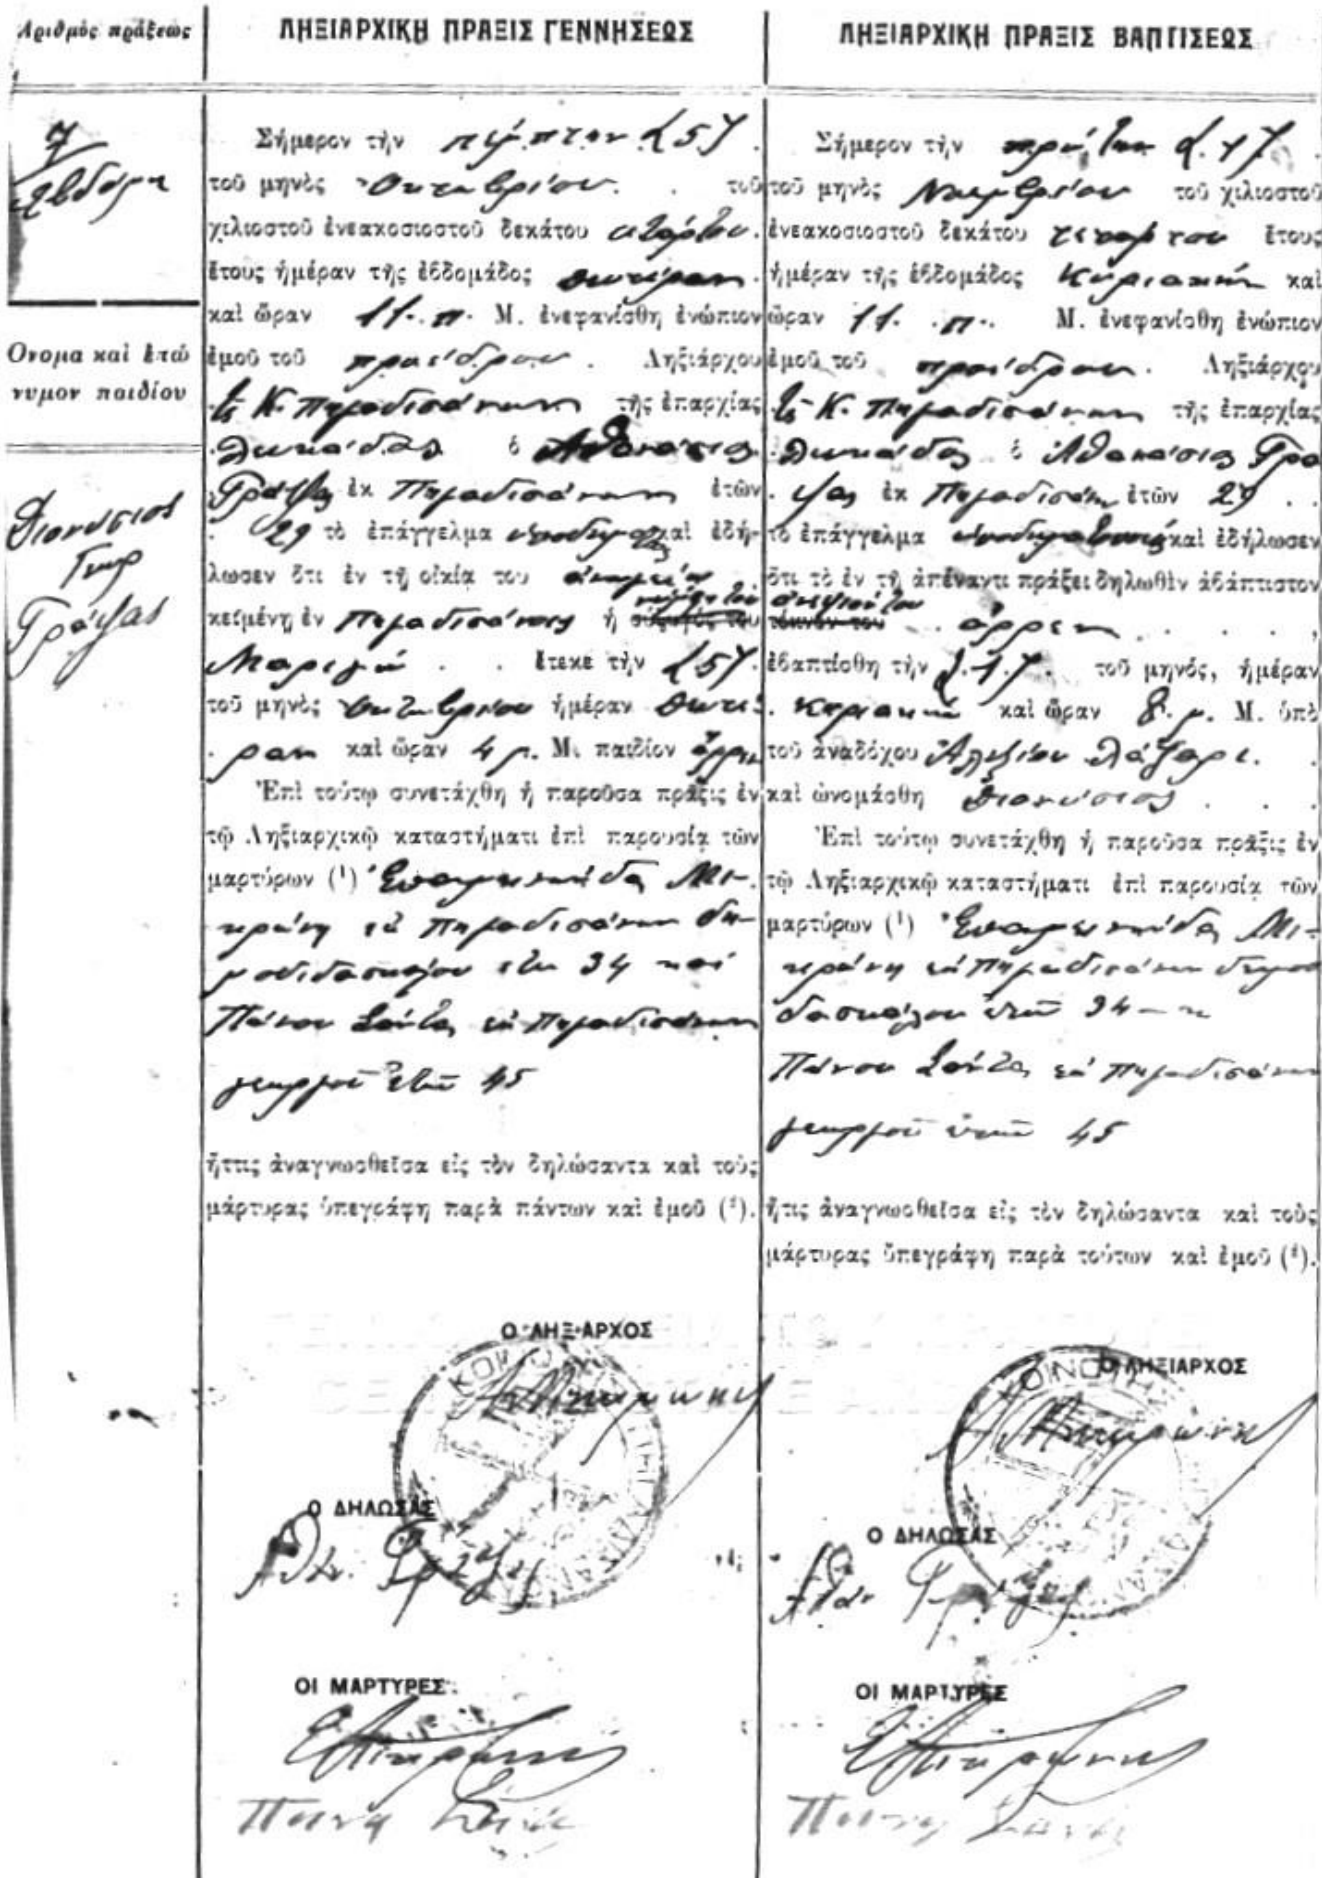 Αριθμὸς πράξεως
7
Ονομα καὶ ἐπώ
νυμον παιδίου
Διονύσιος
Γεωρ
Γράψας
ΛΗΞΙΑΡΧΙΚΗ ΠΡΑΞΙΣ ΓΕΝΝΗΣΕΩΣ
Σήμερον τὴν πέμπτην (5)
τοῦ μηνὸς Οκτωβρίου. . τοῦ
χιλιοστοῦ ἐνεακοσιοστοῦ δεκάτου
ἔτους ἡμέραν τῆς ἑβδομάδος δευτέραν.
καὶ ὥραν 11. π. Μ. ἐνεφανίσθη ἐνώπιον
ἐμοῦ τοῦ προέδρου . Ληξιάρχου
Κ. Πηγαδισάνων τῆς ἐπαρχίας
Λευκάδος ὁ Αθανάσιος
Γράψας ἐκ Πηγαδισάνων ἐτῶν
29 τὸ ἐπάγγελμα καὶ ἐδή-
λωσεν ὅτι ἐν τῇ οἰκίᾳ του
κειμένῃ ἐν Πηγαδισάνοις ἡ
. . ἔτεκε τὴν (5)
τοῦ μηνὸς Οκτωβρίου ἡμέραν Δευτέ
ραν καὶ ὥραν 4 μ. Μ. παιδίον ἄρρεν
Ἐπὶ τούτῳ συνετάχθη ἡ παροῦσα πρᾶξις ἐν
τῷ Ληξιαρχικῷ καταστήματι ἐπὶ παρουσίᾳ τῶν
μαρτύρων (¹) Επαμεινώνδα Μι-
κρώνη ἐκ Πηγαδισάνων δη-
μοδιδασκάλου ἐτῶν 34 καὶ
Πάνου ἐκ Πηγαδισάνων
γεωργοῦ ἐτῶν 45
ἥττις ἀναγνωσθεῖσα εἰς τὸν δηλώσαντα καὶ τοὺς
μάρτυρας ὑπεγράφη παρὰ πάντων καὶ ἐμοῦ (²).
Ο ΛΗΞΙΑΡΧΟΣ
Ο ΔΗΛΩΣΑΣ
Αθ. Γράψας
ΟΙ ΜΑΡΤΥΡΕΣ
ΕΜικρώνης
ΛΗΞΙΑΡΧΙΚΗ ΠΡΑΞΙΣ ΒΑΠΤΙΣΕΩΣ
Σήμερον τὴν πρώτην (1)
τοῦ μηνὸς Νοεμβρίου τοῦ χιλιοστοῦ
ἐνεακοσιοστοῦ δεκάτου τετάρτου ἔτους
ἡμέραν τῆς ἑβδομάδος Κυριακὴν καὶ
ὥραν 11. π. Μ. ἐνεφανίσθη ἐνώπιον
ἐμοῦ τοῦ προέδρου. Ληξιάρχου
Κ. Πηγαδισάνων τῆς ἐπαρχίας
Λευκάδος ὁ Αθανάσιος Γρά
ψας ἐκ Πηγαδισάνων ἐτῶν 29 . .
τὸ ἐπάγγελμα καὶ ἐδήλωσεν
ὅτι τὸ ἐν τῇ ἀπέναντι πράξει δηλωθὲν ἀβάπτιστον
ἄρρεν . . . . ,
ἐβαπτίσθη τὴν (1) τοῦ μηνός, ἡμέραν
Κυριακὴν καὶ ὥραν 8. μ. Μ. ὑπὸ
τοῦ ἀναδόχου Αλεξίου
καὶ ὠνομάσθη Διονύσιος . . .
Ἐπὶ τούτῳ συνετάχθη ἡ παροῦσα πρᾶξις ἐν
τῷ Ληξιαρχικῷ καταστήματι ἐπὶ παρουσίᾳ τῶν
μαρτύρων (¹) Επαμεινώνδα Μι-
κρώνη ἐκ Πηγαδισάνων δημο
δασκάλου ἐτῶν 34
Πάνου ἐκ Πηγαδισάνων
γεωργοῦ ἐτῶν 45
ἥτις ἀναγνωσθεῖσα εἰς τὸν δηλώσαντα καὶ τοὺς
μάρτυρας ὑπεγράφη παρὰ τούτων καὶ ἐμοῦ (²).
Ο ΛΗΞΙΑΡΧΟΣ
Ο ΔΗΛΩΣΑΣ
ΟΙ ΜΑΡΤΥΡΕΣ
ΕΜικρώνης